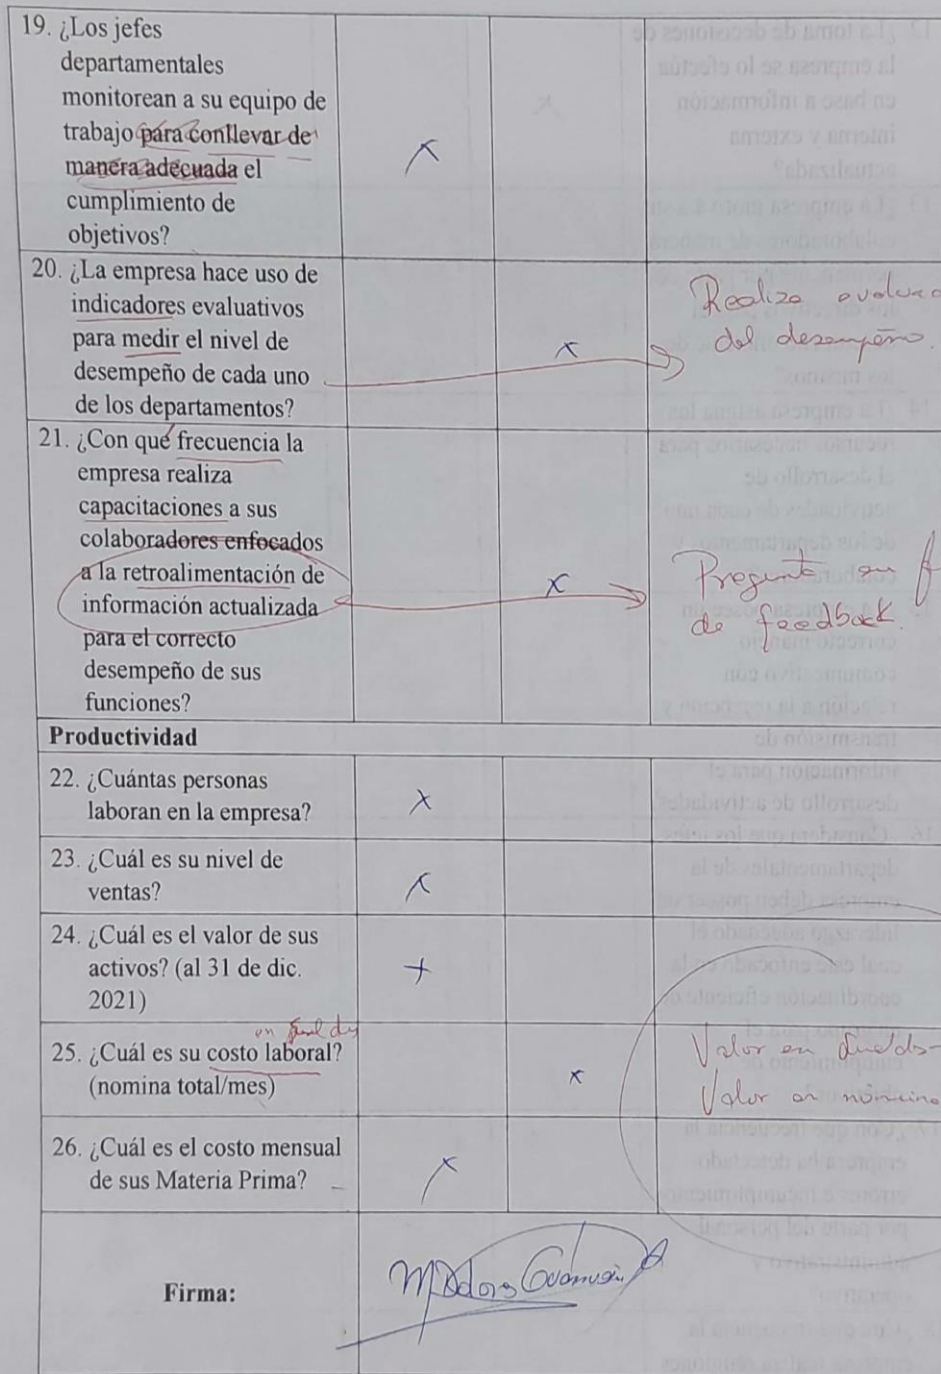 19. ¿Los jefes
departamentales
monitorean a su equipo de
trabajo para conllevar de
manera adecuada el
cumplimiento de
objetivos?
X
20. ¿La empresa hace uso de
indicadores evaluativos
para medir el nivel de
desempeño de cada uno
de los departamentos?
X
Realiza
del desempeño.
21. ¿Con qué frecuencia la
empresa realiza
capacitaciones a sus
colaboradores enfocados
a la retroalimentación de
información actualizada
para el correcto
desempeño de sus
funciones?
X
Pregunta en f
de feedback.
Productividad
22. ¿Cuántas personas
laboran en la empresa?
X
23. ¿Cuál es su nivel de
ventas?
X
24. ¿Cuál es el valor de sus
activos? (al 31 de dic.
2021)
X
25. ¿Cuál es su costo laboral?
(nomina total/mes)
X
Valor en
Valor en
26. ¿Cuál es el costo mensual
de sus Materia Prima?
X
Firma: